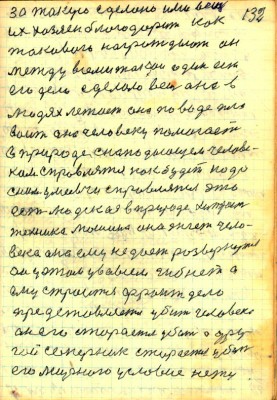 132
за такую сделано ими вещ
их хозяен благодорит как
такового награждает он
между всеми такой один ест
его дело сделало вещ она в
людях летает она по воде пла
вает она человеку помогает
в природе с нападающем челове-
ком справлятся как будет надо
с ним умело справлятся это
ест людская в природе
техника машина она жгет чело-
века она ему не дает розвернутся
он у этом увесьем гибнет а
ему строится фронт дело
представляется убит человека
он его старается убит а дру-
гой соперник старается убит
его мирного условие нету